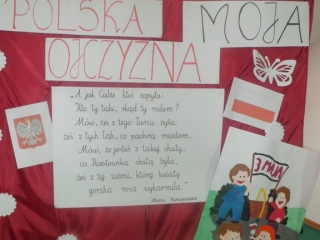 POLSKA
MOJA
OJCZYZNA
„A jak Ciebie ktoś zapyta:
Kto Ty taki, skąd ty rodem?
Mów, żeś z tego łanu żyta,
żeś z tych łąk, co pachną miodem.
Mów, że jesteś z takiej chaty,
co Piastowską chatą była,
żeś z tej ziemi, której kwiaty
gorzka rosa wykarmiła."
Maria Konopnicka
3 MAJ